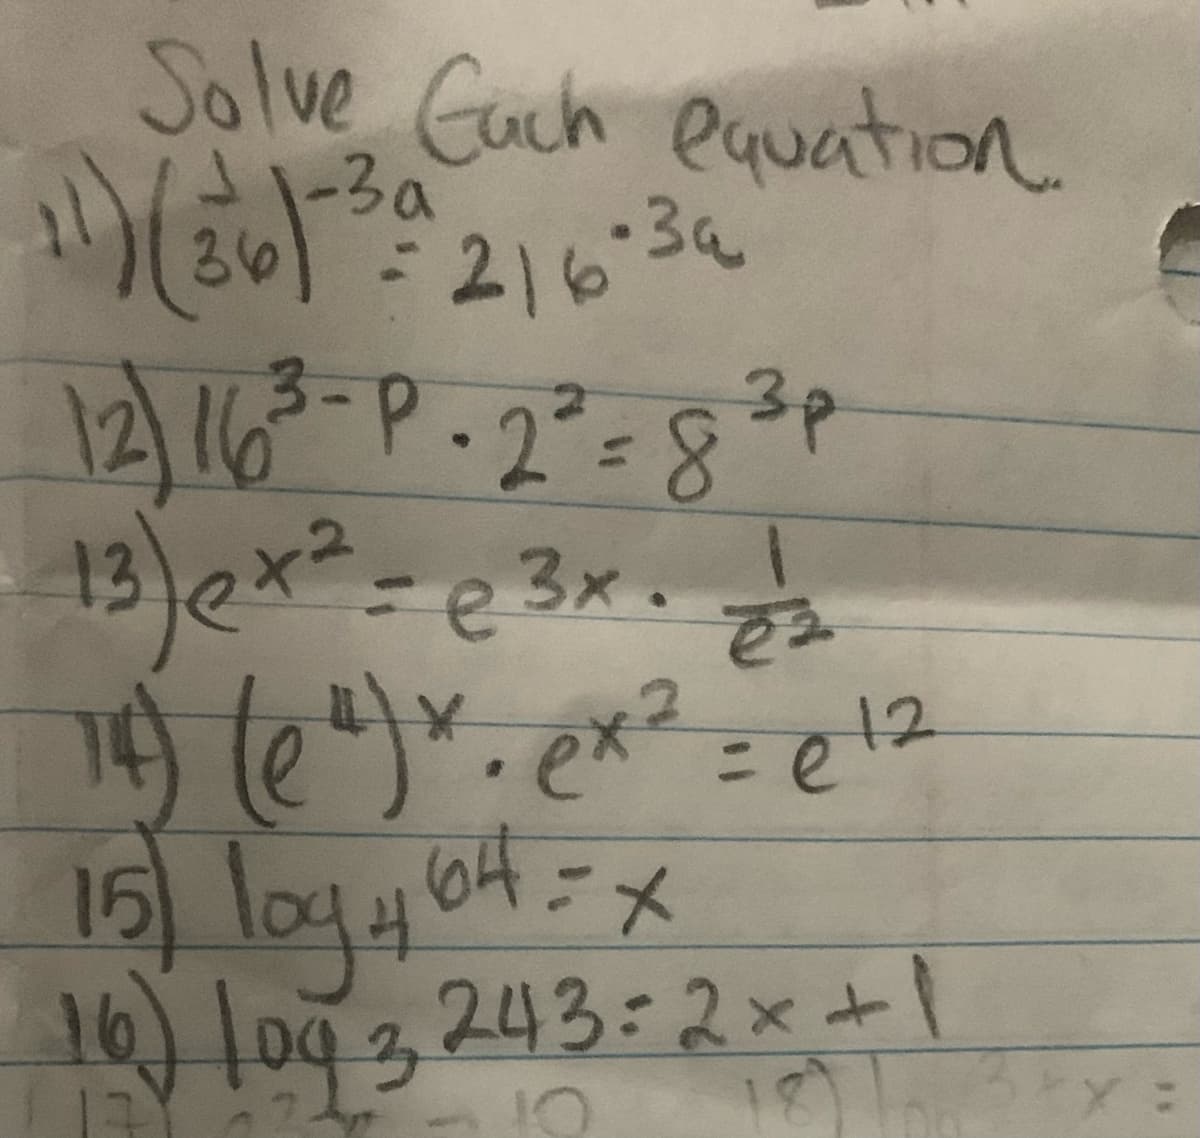 Solve Each equation.
11) (1/36)^-3a = 216^-3a
12) 16^3-p · 2² = 8^3p
13) e^x² = e^3x · 1/e²
14) (e⁴)^x · e^x² = e^12
15) log₄ 64 = x
16) log₃ 243 = 2x + 1
17) 10 18) log 3 x =